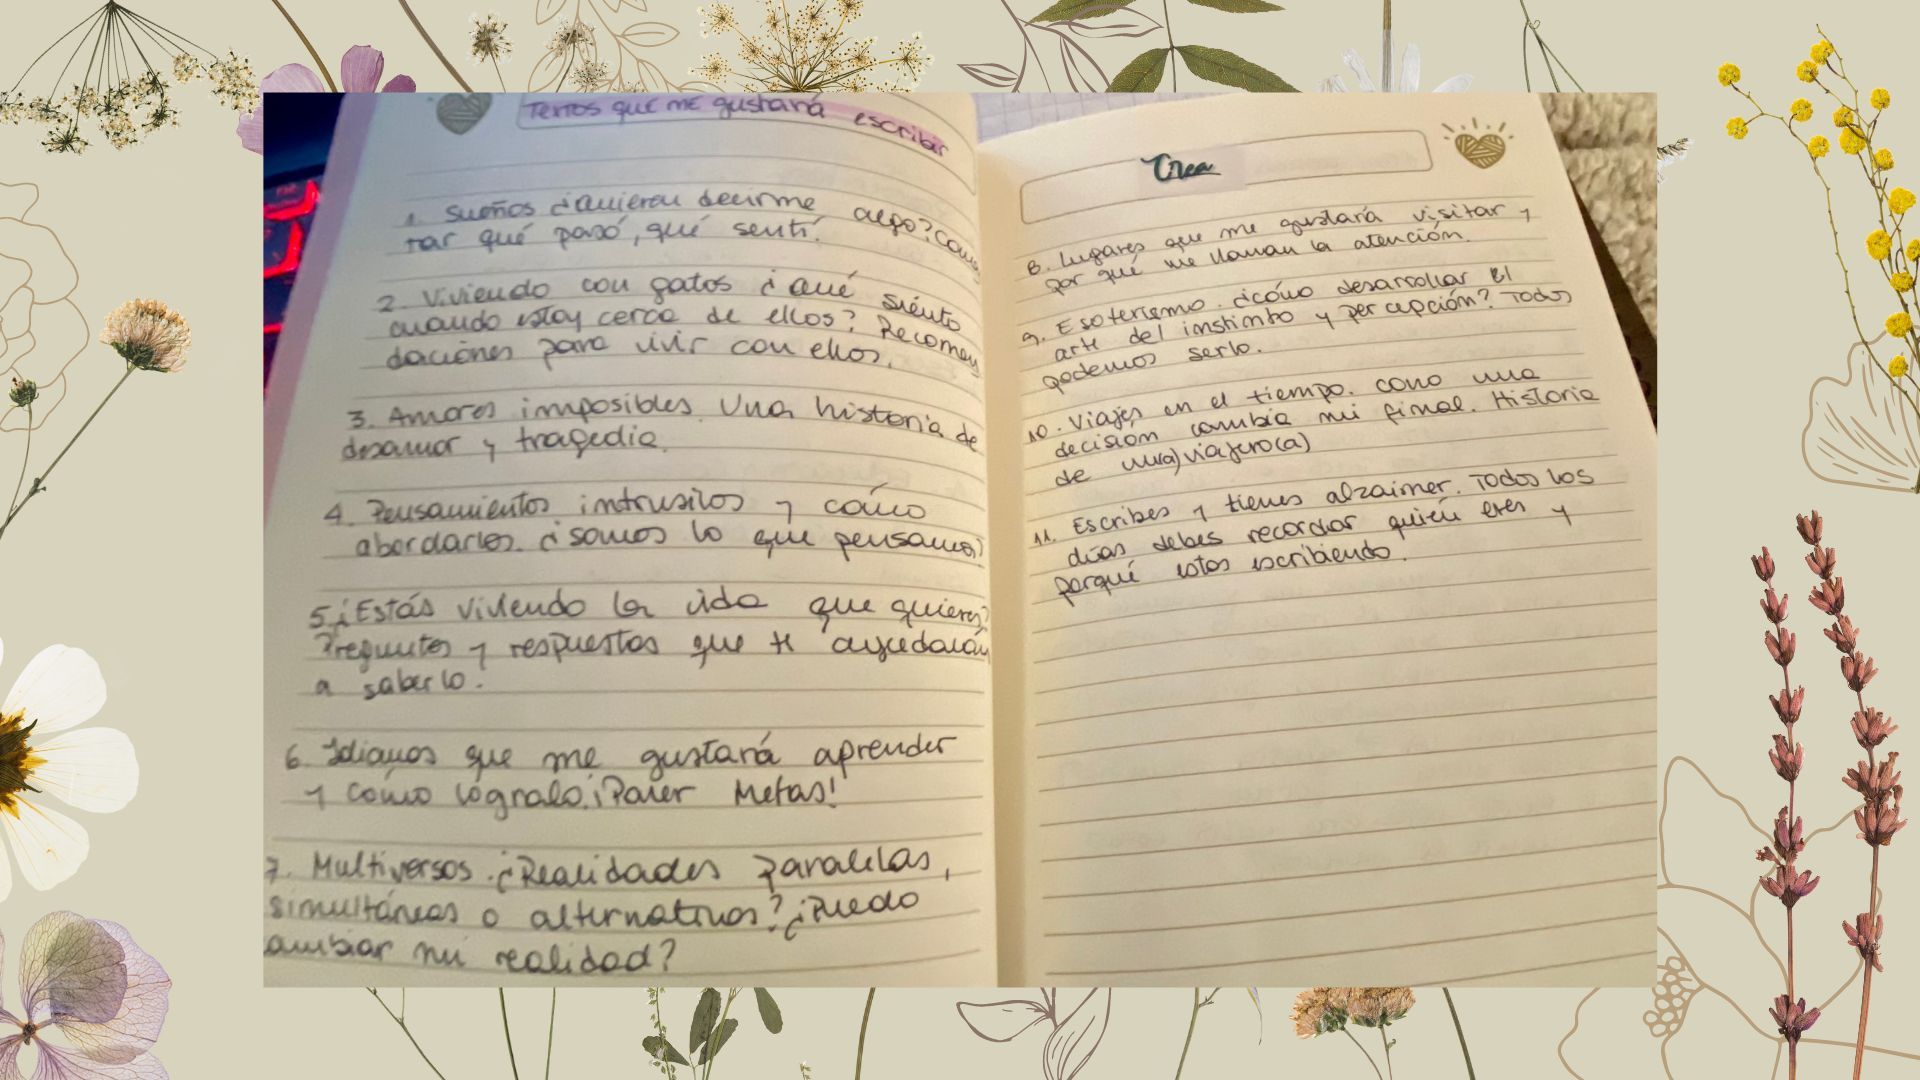 Textos que me gustaría escribir
1. Sueños ¿Quieren decirme algo? Con
tar qué pasó, qué sentí.
2. Viviendo con gatos ¿Qué siento
cuando estoy cerca de ellos? Recomen
daciones para vivir con ellos.
3. Amores imposibles. Una historia de
desamor y tragedia.
4. Pensamientos intrusivos y cómo
abordarlos. ¿Somos lo que pensamos?
5. ¿Estás viviendo la vida que quieres?
Preguntas y respuestas que te ayudarán
a saberlo.
6. Idiomas que me gustará aprender
y cómo lógralo. ¡Poner Metas!
7. Multiversos. ¿Realidades paralelas,
simultáneas o alternativas? ¿Puedo
ambiar mi realidad?
Crea
8. Lugares que me gustaría visitar y
por qué me llaman la atención.
9. Esoterismo. ¿cómo desarrollar el
arte del instinto y percepción? Todos
podemos serlo.
10. Viajes en el tiempo. como una
decisión cambia mi final. Historia
de un(a) viajero(a)
11. Escribes y tienes alzaimer. Todos los
días debes recordar quién eres y
porqué estas escribiendo.